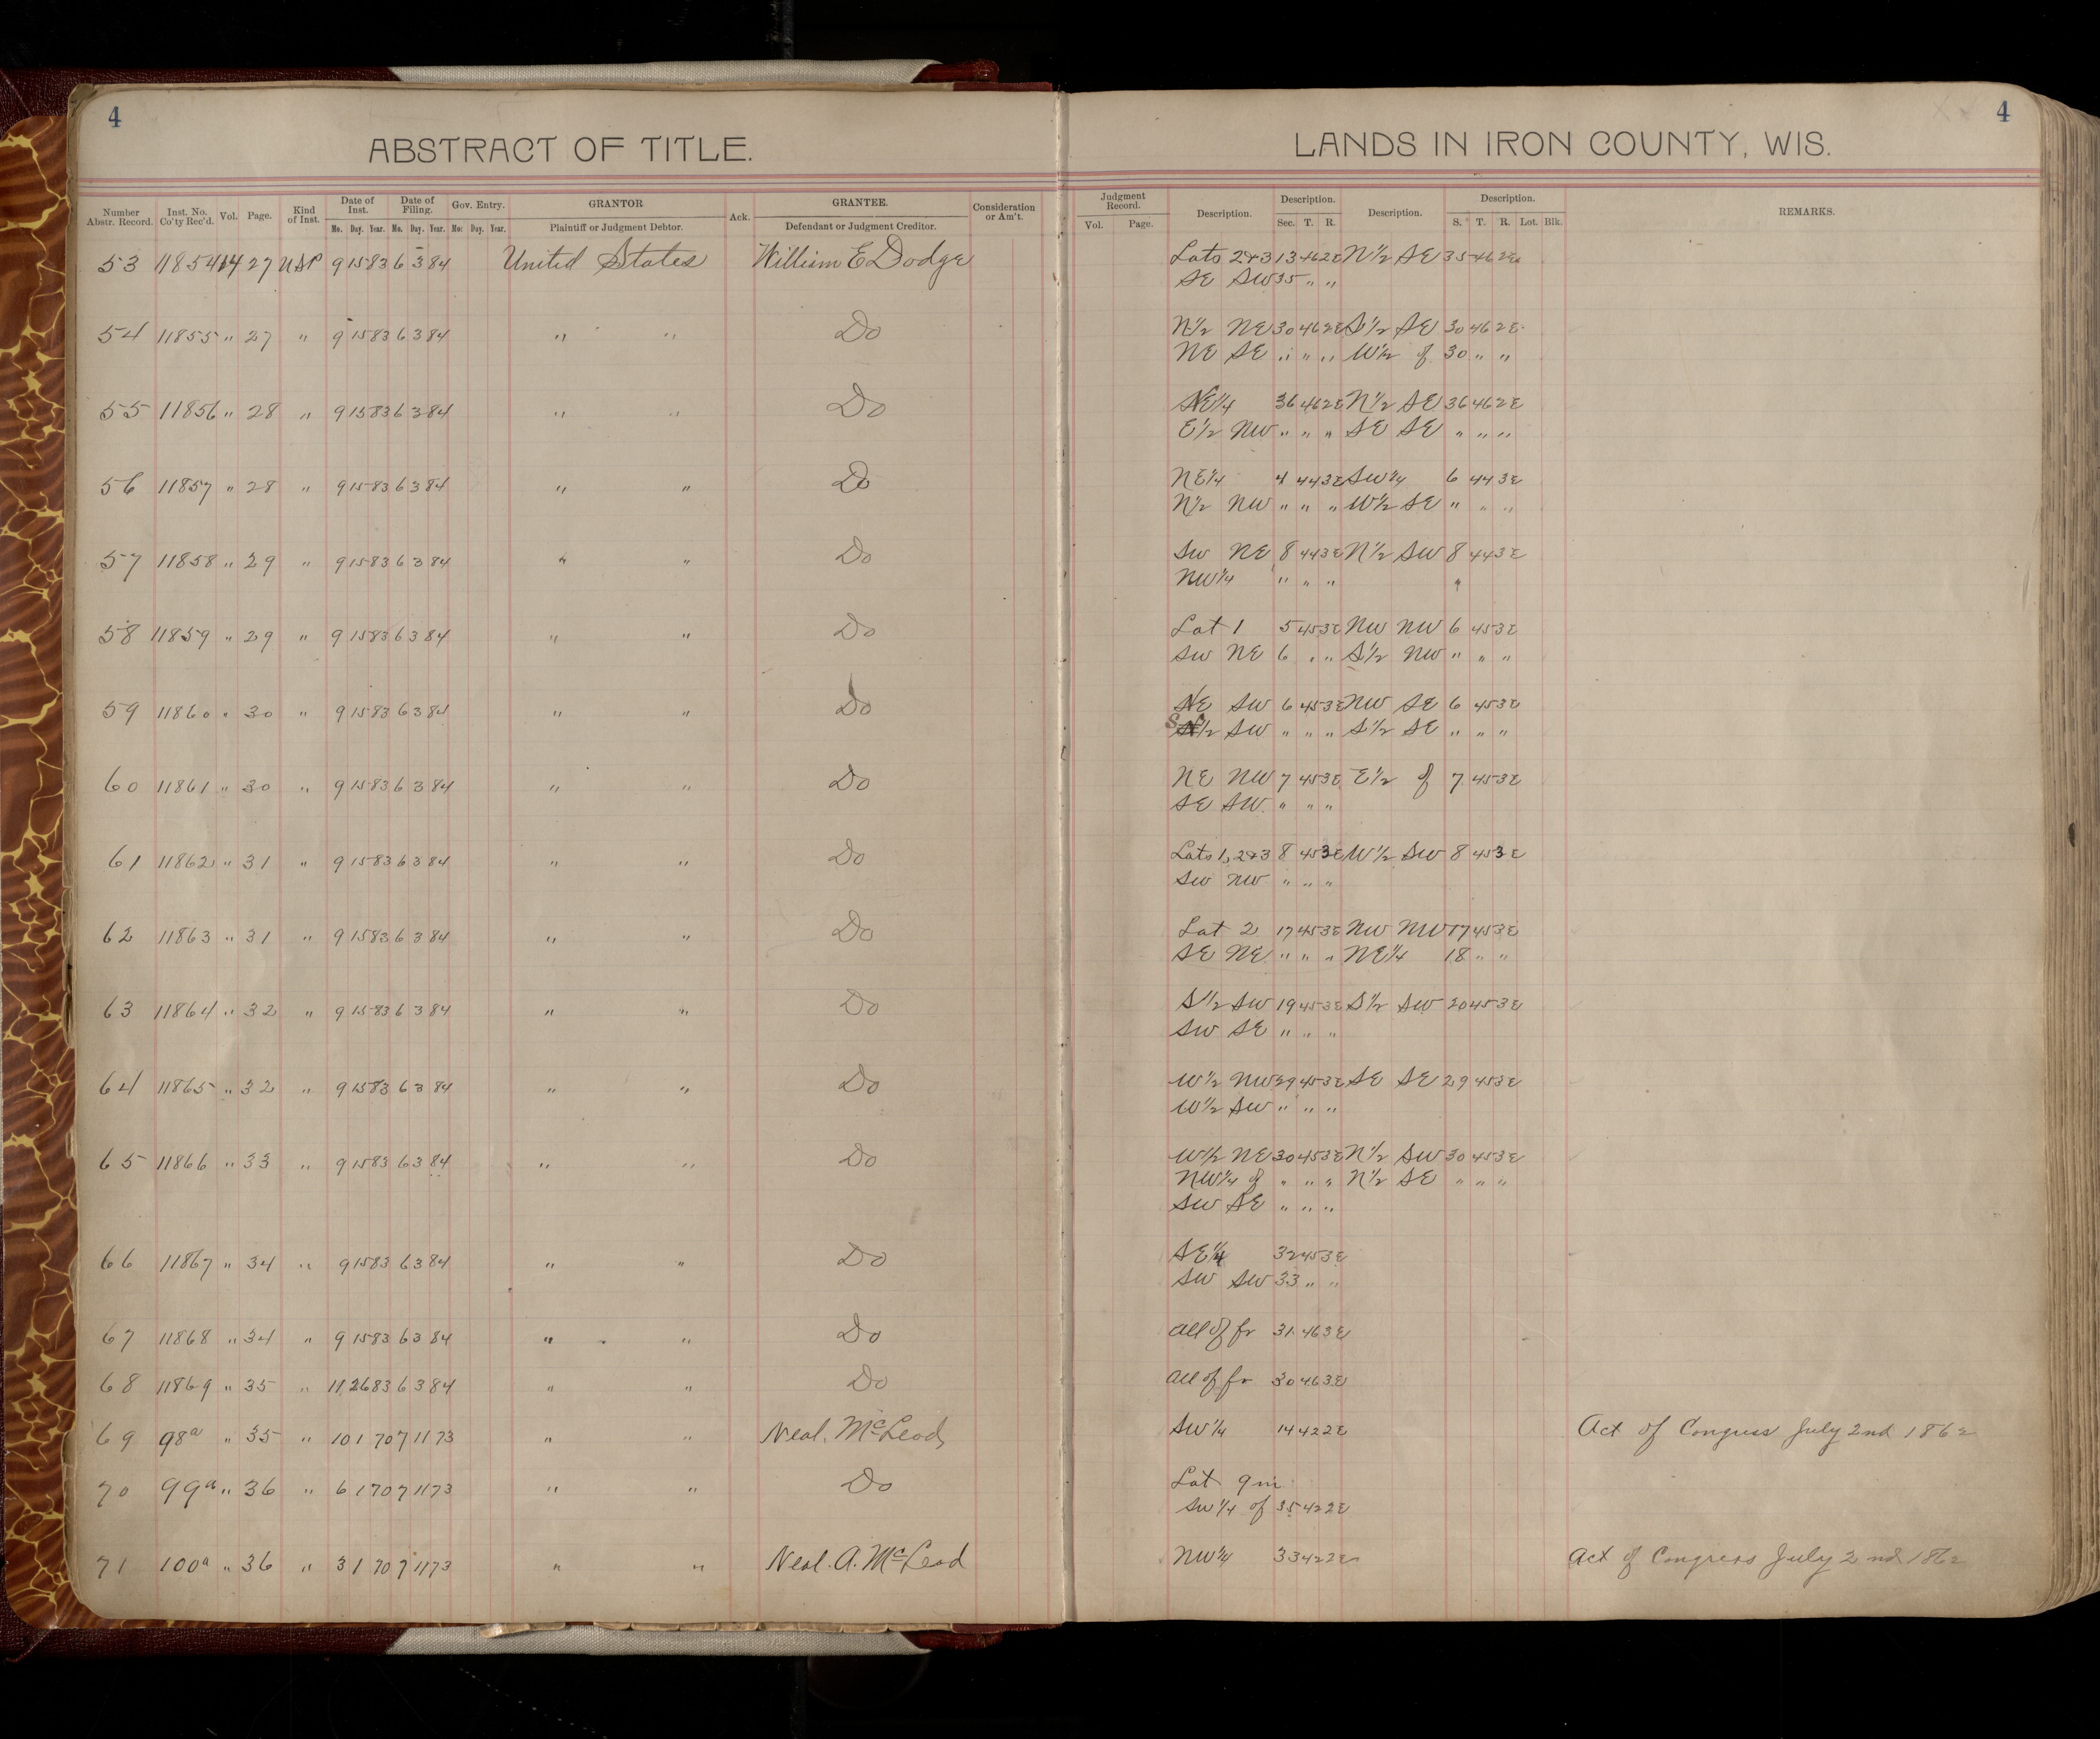 4
ABSTRACT OF TITLE.
LANDS IN IRON COUNTY, WIS.
4
Number Abstr. Record. Inst. No. Co'ty Rec'd. Vol. Page. Kind of Inst. Date of Inst. Date of Filing. Gov. Entry. GRANTOR Ack. GRANTEE. Consideration or Am't. Judgment Record. Description. Description. Description. Description. REMARKS.
Mo. Day. Year. Mo. Day. Year. Mo: Day. Year. Plaintiff or Judgment Debtor. Defendant or Judgment Creditor. Vol. Page. Sec. T. R. S. T. R. Lot. Blk.
53 11854 14 27 USP 9 15 83 6 3 84 United States William E Dodge Lots 2&3 13 46 2E N½ SE 35 46 2E
SE SW 35 " "
54 11855 " 27 " 9 15 83 6 3 84 " " Do N½ NE 30 46 2E S½ SE 30 46 2E
NE SE " " " W½ of 30 " "
55 11856 " 28 " 9 15 83 6 3 84 " " Do NE¼ 36 46 2E N½ SE 36 46 2E
E½ NW " " " SE SE " " "
56 11857 " 28 " 9 15 83 6 3 84 " " Do NE¼ 4 44 3E SW¼ 6 44 3E
N½ NW " " " W½ SE " " "
57 11858 " 29 " 9 15 83 6 3 84 " " Do SW NE 8 44 3E N½ SW 8 44 3E
NW¼ " " " "
58 11859 " 29 " 9 15 83 6 3 84 " " Do Lot 1 5 45 3E NW NW 6 45 3E
SW NE 6 " " S½ NW " " "
59 11860 " 30 " 9 15 83 6 3 84 " " Do NE SW 6 45 3E NW SE 6 45 3E
S½ SW " " " S½ SE " " "
60 11861 " 30 " 9 15 83 6 3 84 " " Do NE NW 7 45 3E E½ of 7 45 3E
SE SW " " "
61 11862 " 31 " 9 15 83 6 3 84 " " Do Lots 1, 2&3 8 45 3E W½ SW 8 45 3E
SW NW " " "
62 11863 " 31 " 9 15 83 6 3 84 " " Do Lot 2 17 45 3E NW NW 17 45 3E
SE NE " " " NE¼ 18 " "
63 11864 " 32 " 9 15 83 6 3 84 " " Do S½ SW 19 45 3E S½ SW 20 45 3E
SW SE " " "
64 11865 " 32 " 9 15 83 6 3 84 " " Do W½ NW 29 45 3E SE SE 29 45 3E
W½ SW " " "
65 11866 " 33 " 9 15 83 6 3 84 " " Do W½ NE 30 45 3E N½ SW 30 45 3E
NW¼ of " " " N½ SE " " "
SW SE " " "
66 11867 " 34 " 9 15 83 6 3 84 " " Do SE¼ 32 45 3E
SW SW 33 " "
67 11868 " 34 " 9 15 83 6 3 84 " " Do all of fr 31 46 3E
68 11869 " 35 " 11 26 83 6 3 84 " " Do all of fr 30 46 3E
69 98a " 35 " 10 1 70 7 11 73 " " Neal. McLeod SW¼ 14 42 2E Act of Congress July 2nd 1862
70 99a " 36 " 6 1 70 7 11 73 " " Do Lot 9 in
SW¼ of 35 42 2E
71 100a " 36 " 3 1 70 7 11 73 " " Neal. A. McLeod NW¼ 33 42 2E Act of Congress July 2nd 1862